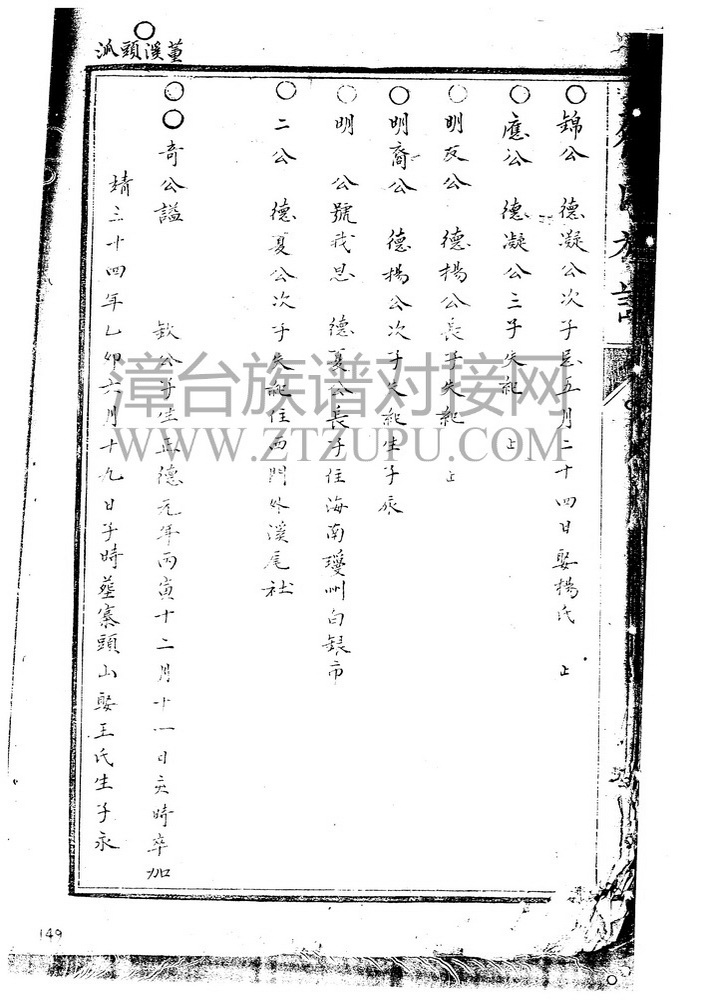 錦公　德凝公次子忌五月二十四日娶楊氏　止
應公　德凝公三子失紀　止
明友公　德揚公長子失紀　止
明裔公　德揚公次子失紀生子辰
明　公號我思　德夏公長子住海南瓊州白銀市
二公　德夏公次子失紀住西門外溪尾社
奇公謚　欽公子生正德元年丙寅十二月十一日亥時卒加
靖三十四年乙卯六月十九日子時葬寨頭山娶王氏生子永
董溪頭派
漳台族谱对接网
WWW.ZTZUPU.COM
149